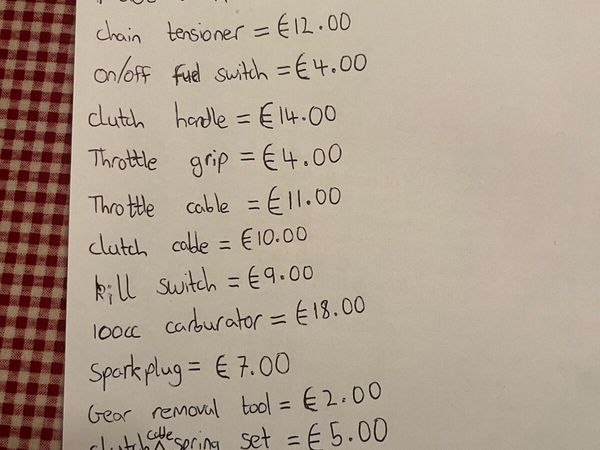 chain tensioner = €12.00
on/off fuel switch = €4.00
clutch handle = €14.00
Throttle grip = €4.00
Throttle cable = €11.00
clutch cable = €10.00
kill switch = €9.00
100cc carburator = €18.00
Spark plug = €7.00
Gear removal tool = €2.00
clutch cable spring set = €5.00